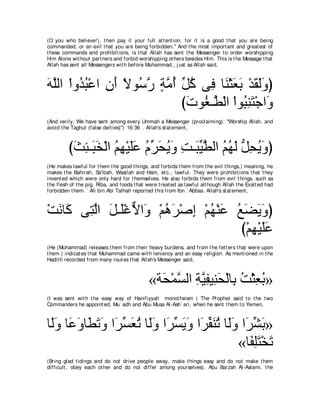 (O you who believe!), then pay it your full attention, for it is a good that you are being
commanded, or an evil that you are being forbidden." And the most important and greatest of
these commands and prohibitions, is that Allah has sent the Messenger to order worshipping
Him Alone without partners and forbid worshipping others besides Him. This is the Message that
Allah has sent all Messengers with before Muhammad , just as Allah said,
وَلَقَدْ بَعَثْنَا فِى كُلِّ أُمَّةٍ رَّسُولاً أَنِ اعْبُدُواْ اللَّهَ
وَاجْتَنِبُواْ الْطَّـغُوتَ)
(And verily, We have sent among every Ummah a Messenger (proclaiming): "Worship Allah, and
avoid the Taghut (false deities)") 16:36 . Allah's statement,
(وَيُحِلُّ لَهُمُ الطَّيِّبَـتِ وَيُحَرِّمُ عَلَيْهِمُ الْخَبَـئِثَ)
(He makes lawful for them the good things, and forbids them from the evil things,) meaning, he
makes the Bahirah, Sa'ibah, Wasilah and Ham, etc., lawful. They were prohibitions that they
invented which were only hard for themselves. He also forbids them from evil things, such as
the flesh of the pig, Riba, and foods that were treated as lawful although Allah the Exalted had
forbidden them. `Ali bin Abi Talhah reported this from Ibn `Abbas. Allah's statement,
(وَيَضَعُ عَنْهُمْ إِصْرَهُمْ وَالاٌّغْلَـلَ الَّتِى كَانَتْ
عَلَيْهِمْ)
(He (Muhammad) releases them from their heavy burdens, and from the fetters that were upon
them.) indicates that Muhammad came with leniency and an easy religion. As mentioned in the
Hadith recorded from many routes that Allah's Messenger said,
«بُعِثْتُ بِالْحَنِيفِيَّةِ السَّمْحَة»
(I was sent with the easy way of Hanifiyyah monotheism ) The Prophet said to the two
Commanders he appointed, Mu`adh and Abu Musa Al-Ash`ari, when he sent them to Yemen,
«بَشِّرَا وَلَا تُنَفِّرَا وَيَسِّرَا وَلَا تُعَسِّرَا وَتَطَاوَعَا وَلَا
تَخْتَلِفَا»
(Bring glad tidings and do not drive people away, make things easy and do not make them
difficult, obey each other and do not differ among yourselves). Abu Barzah Al-Aslami, the